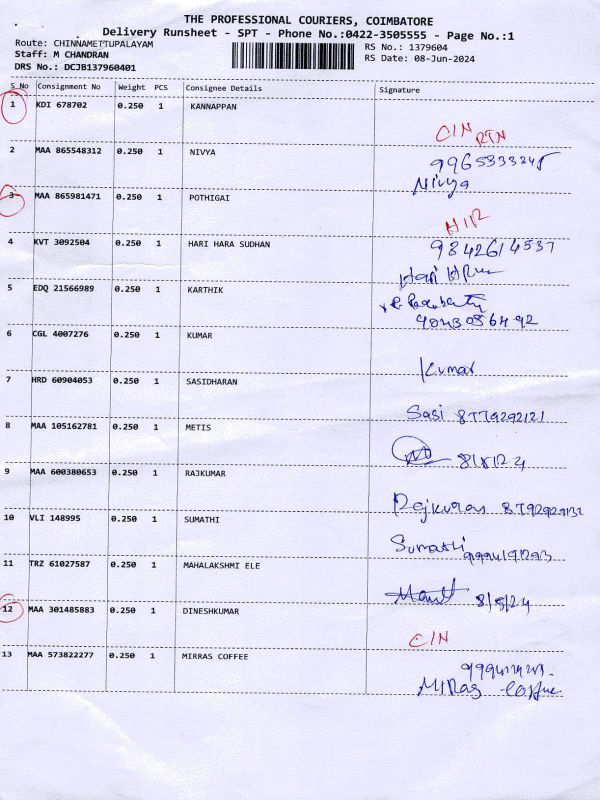 THE PROFESSIONAL COURIERS, COIMBATORE
Delivery Runsheet - SPT - Phone No.:0422-3505555 - Page No.:1
Route: CHINNAMETTUPALAYAM
Staff: M CHANDRAN
DRS No.: DCJB137960401
RS No.: 1379604
RS Date: 08-Jun-2024
S No Consignment No Weight PCS Consignee Details Signature
1 KDI 678702 0.250 1 KANNAPPAN
CIN RTN
2 MAA 865548312 0.250 1 NIVYA
Nivya
3 MAA 865981471 0.250 1 POTHIGAI
4 KVT 3092504 0.250 1 HARI HARA SUDHAN
Hari
5 EDQ 21566989 0.250 1 KARTHIK
6 CGL 4007276 0.250 1 KUMAR
Kumar
7 HRD 60904053 0.250 1 SASIDHARAN
Sasi 8779292121
8 MAA 105162781 0.250 1 METIS
9 MAA 600380653 0.250 1 RAJKUMAR
10 VLI 148995 0.250 1 SUMATHI
11 TRZ 61027587 0.250 1 MAHALAKSHMI ELE
12 MAA 301485883 0.250 1 DINESHKUMAR
CIN
13 MAA 573822277 0.250 1 MIRRAS COFFEE